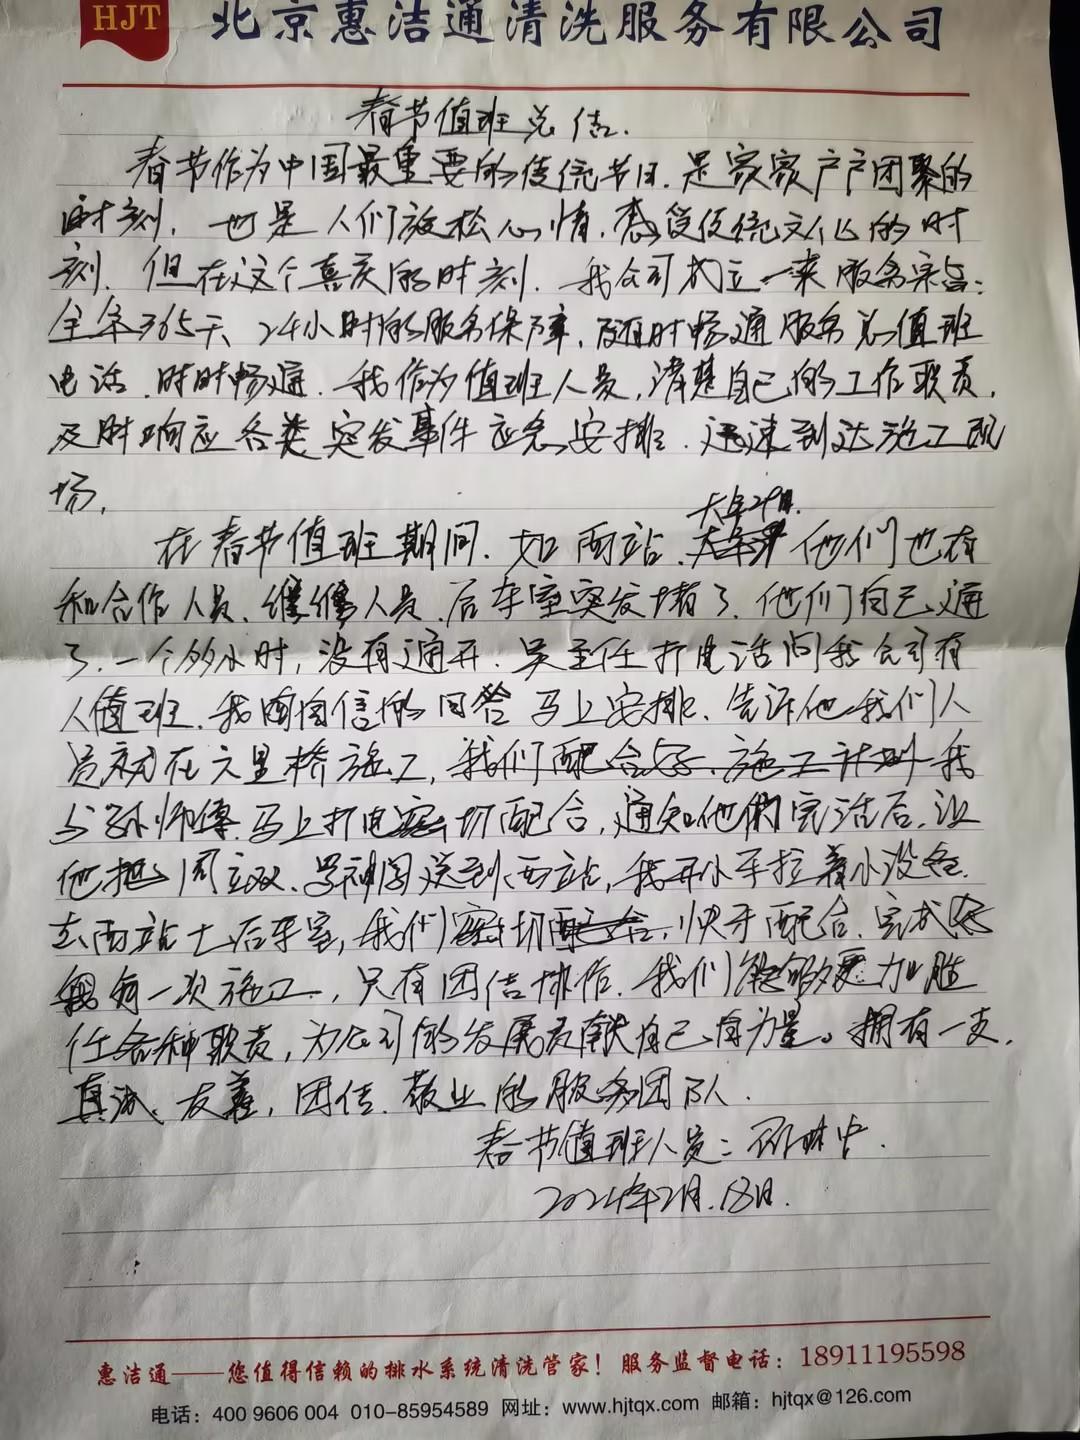 HJT 北京惠洁通清洗服务有限公司
春节值班总结.
春节作为中国最重要的传统节日.是家家户户团聚的
时刻，也是人们放松心情，感受传统文化的时
刻.但在这个喜庆的时刻.我公司成立一来服务宗旨:
全年365天、24小时的服务保障，随时畅通服务总值班
电话.时时畅通.我作为值班人员，清楚自己的工作职责.
及时响应各类突发事件应急安排.迅速到达施工现
场，
大年29日.
在春节值班期间.如西站.他们也有
和合作人员、维修人员.后车室突发堵了.他们自己通
了.一个多小时，没有通开.吴主任打电话问我公司有
人值班.我自信的回答马上安排、告诉他我们人
员在六里桥施工，我们配合好、施工计划 我
与孙师傅.马上打电 切配合，通知他们完活后.让
他把周立双、送到西站，我开小车拉着小设备.
去西站七后车室，我们密切配合，快手配合.完成
每一次施工.，只有团结协作.我们能够更加胜
任各种职责，为公司的发展贡献自己自力量。拥有一支.
真诚、友善，团结.敬业的服务团队.
春节值班人员:
2024年2月.18日.
惠洁通——您值得信赖的排水系统清洗管家！服务监督电话：18911195598
电话：400 9606 004 010-85954589 网址：www.hjtqx.com 邮箱：hjtqx@126.com